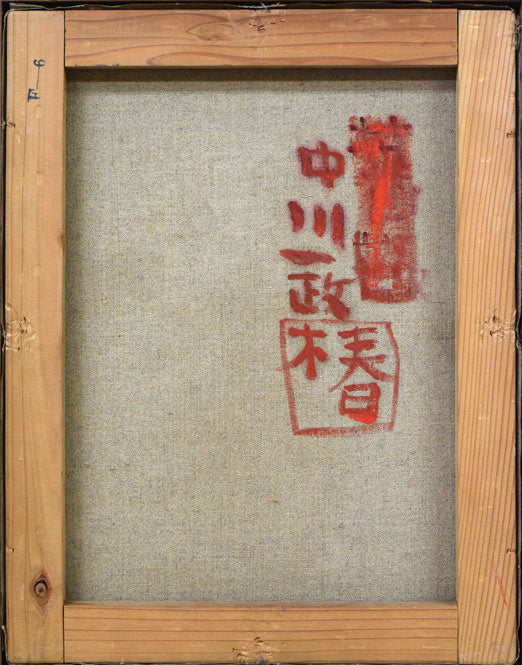 F-6
中川一政
椿